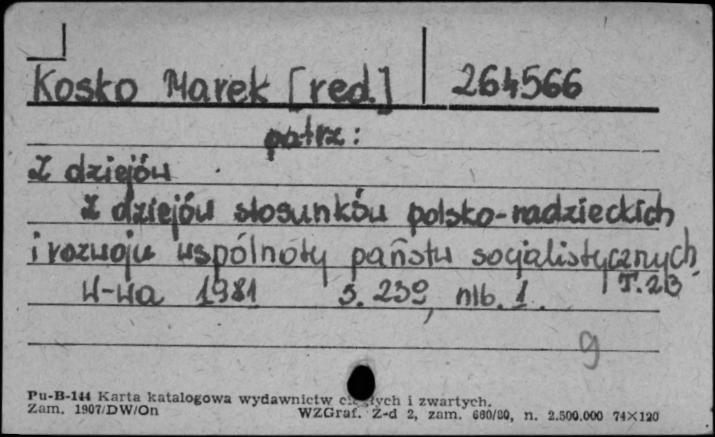 Kosko Marek [red.] 264566
patrz:
Z dziejów
Z dziejów stosunków polsko-radzieckich
i rozwoju wspólnoty państw socjalistycznych
W-wa 1981 s. 239, nlb. 1. T. 23
9
Pu-B-144 Karta katalogowa wydawnictw ciągłych i zwartych.
Zam. 1907/DW/On WZGraf. Z-d 2, zam. 680/80, n. 2.500.000 74×120